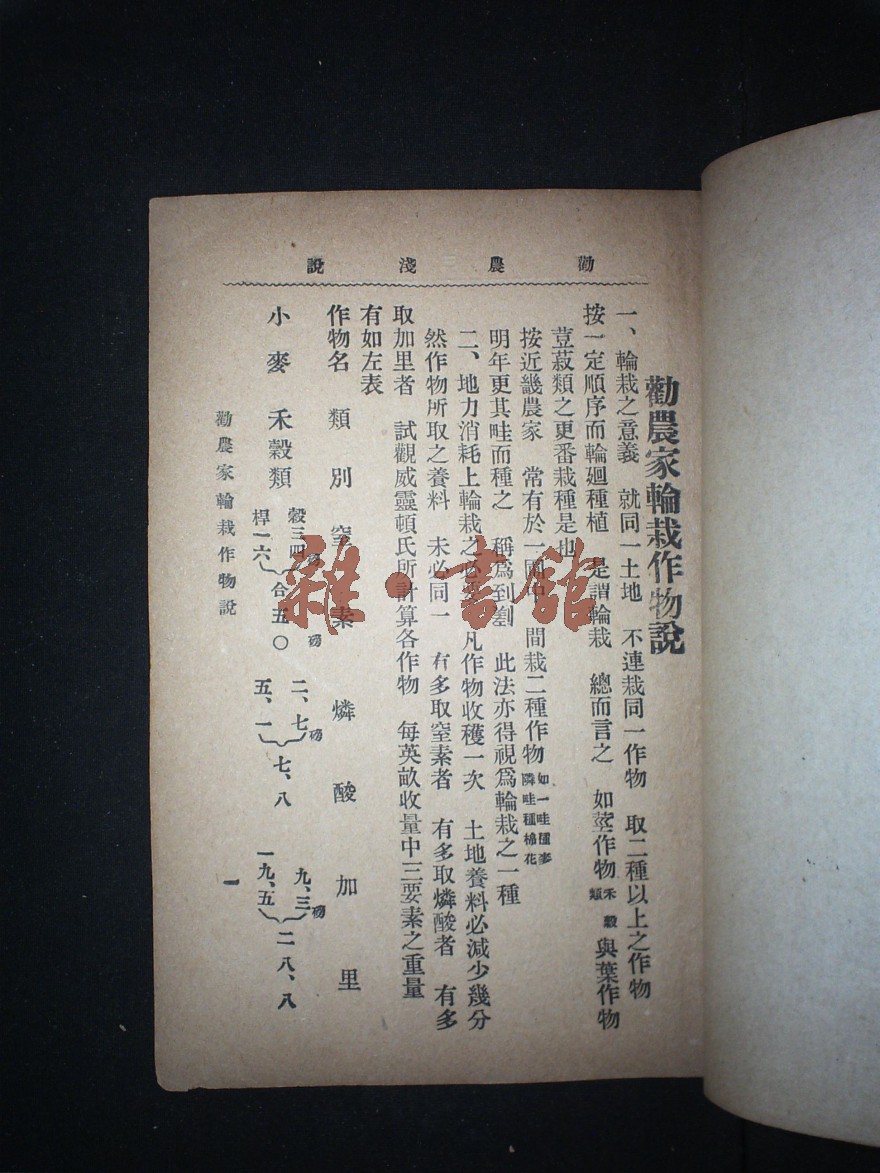 勸農三淺說
勸農家輪栽作物說
一、輪栽之意義 就同一土地 不連栽同一作物 取二種以上之作物
按一定順序而輪廻種植 是謂輪栽 總而言之 如莖作物禾穀類與葉作物
荳菽類之更番栽種是也
按近畿農家 常有於一 間栽二種作物如一畦種麥隣畦種棉花
明年更其畦而種之 稱爲到劃 此法亦得視爲輪栽之一種
二、地力消耗上輪栽之必 凡作物收穫一次 土地養料必減少幾分
然作物所取之養料 未必同一 有多取窒素者 有多取燐酸者 有多
取加里者 試觀威靈頓氏所計算各作物 每英畝收量中三要素之重量
有如左表
作物名 類別 窒素 燐酸 加里
小麥 禾穀類 穀三四磅 桿一六 合五〇磅 二、七磅 五、一 七、八 九、三磅 一九、五 二八、八
勸農家輪栽作物說
一
雜·書館